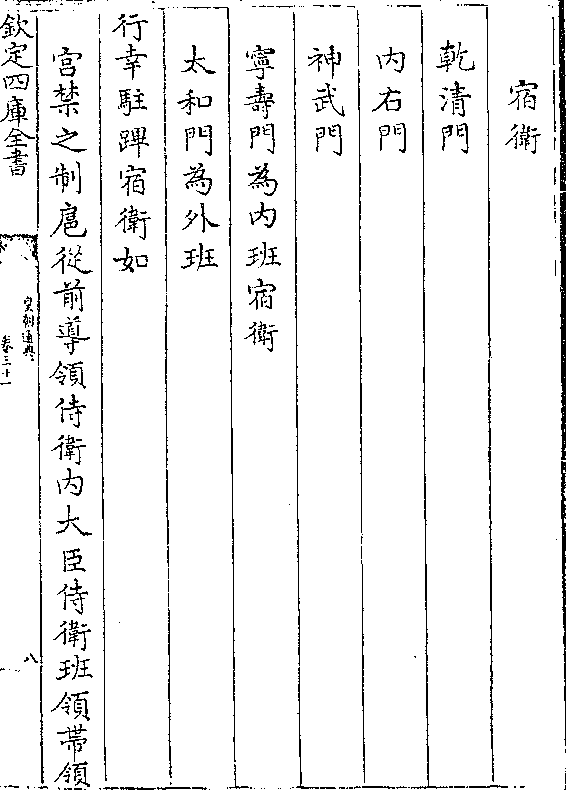 宿衛
乾清門
内右門
神武門
寧壽門為内班宿衛
太和門為外班
行幸駐蹕宿衛如
宫禁之制扈從前導領侍衛内大臣侍衛班領帶領
欽定四庫全書
皇朝通典
卷三十一
八